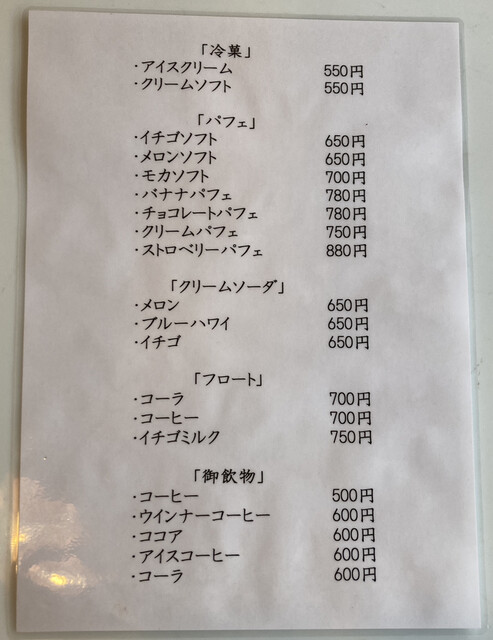 「冷菓」
・アイスクリーム 550円
・クリームソフト 550円
「パフェ」
・イチゴソフト 650円
・メロンソフト 650円
・モカソフト 700円
・バナナパフェ 780円
・チョコレートパフェ 780円
・クリームパフェ 750円
・ストロベリーパフェ 880円
「クリームソーダ」
・メロン 650円
・ブルーハワイ 650円
・イチゴ 650円
「フロート」
・コーラ 700円
・コーヒー 700円
・イチゴミルク 750円
「御飲物」
・コーヒー 500円
・ウインナーコーヒー 600円
・ココア 600円
・アイスコーヒー 600円
・コーラ 600円